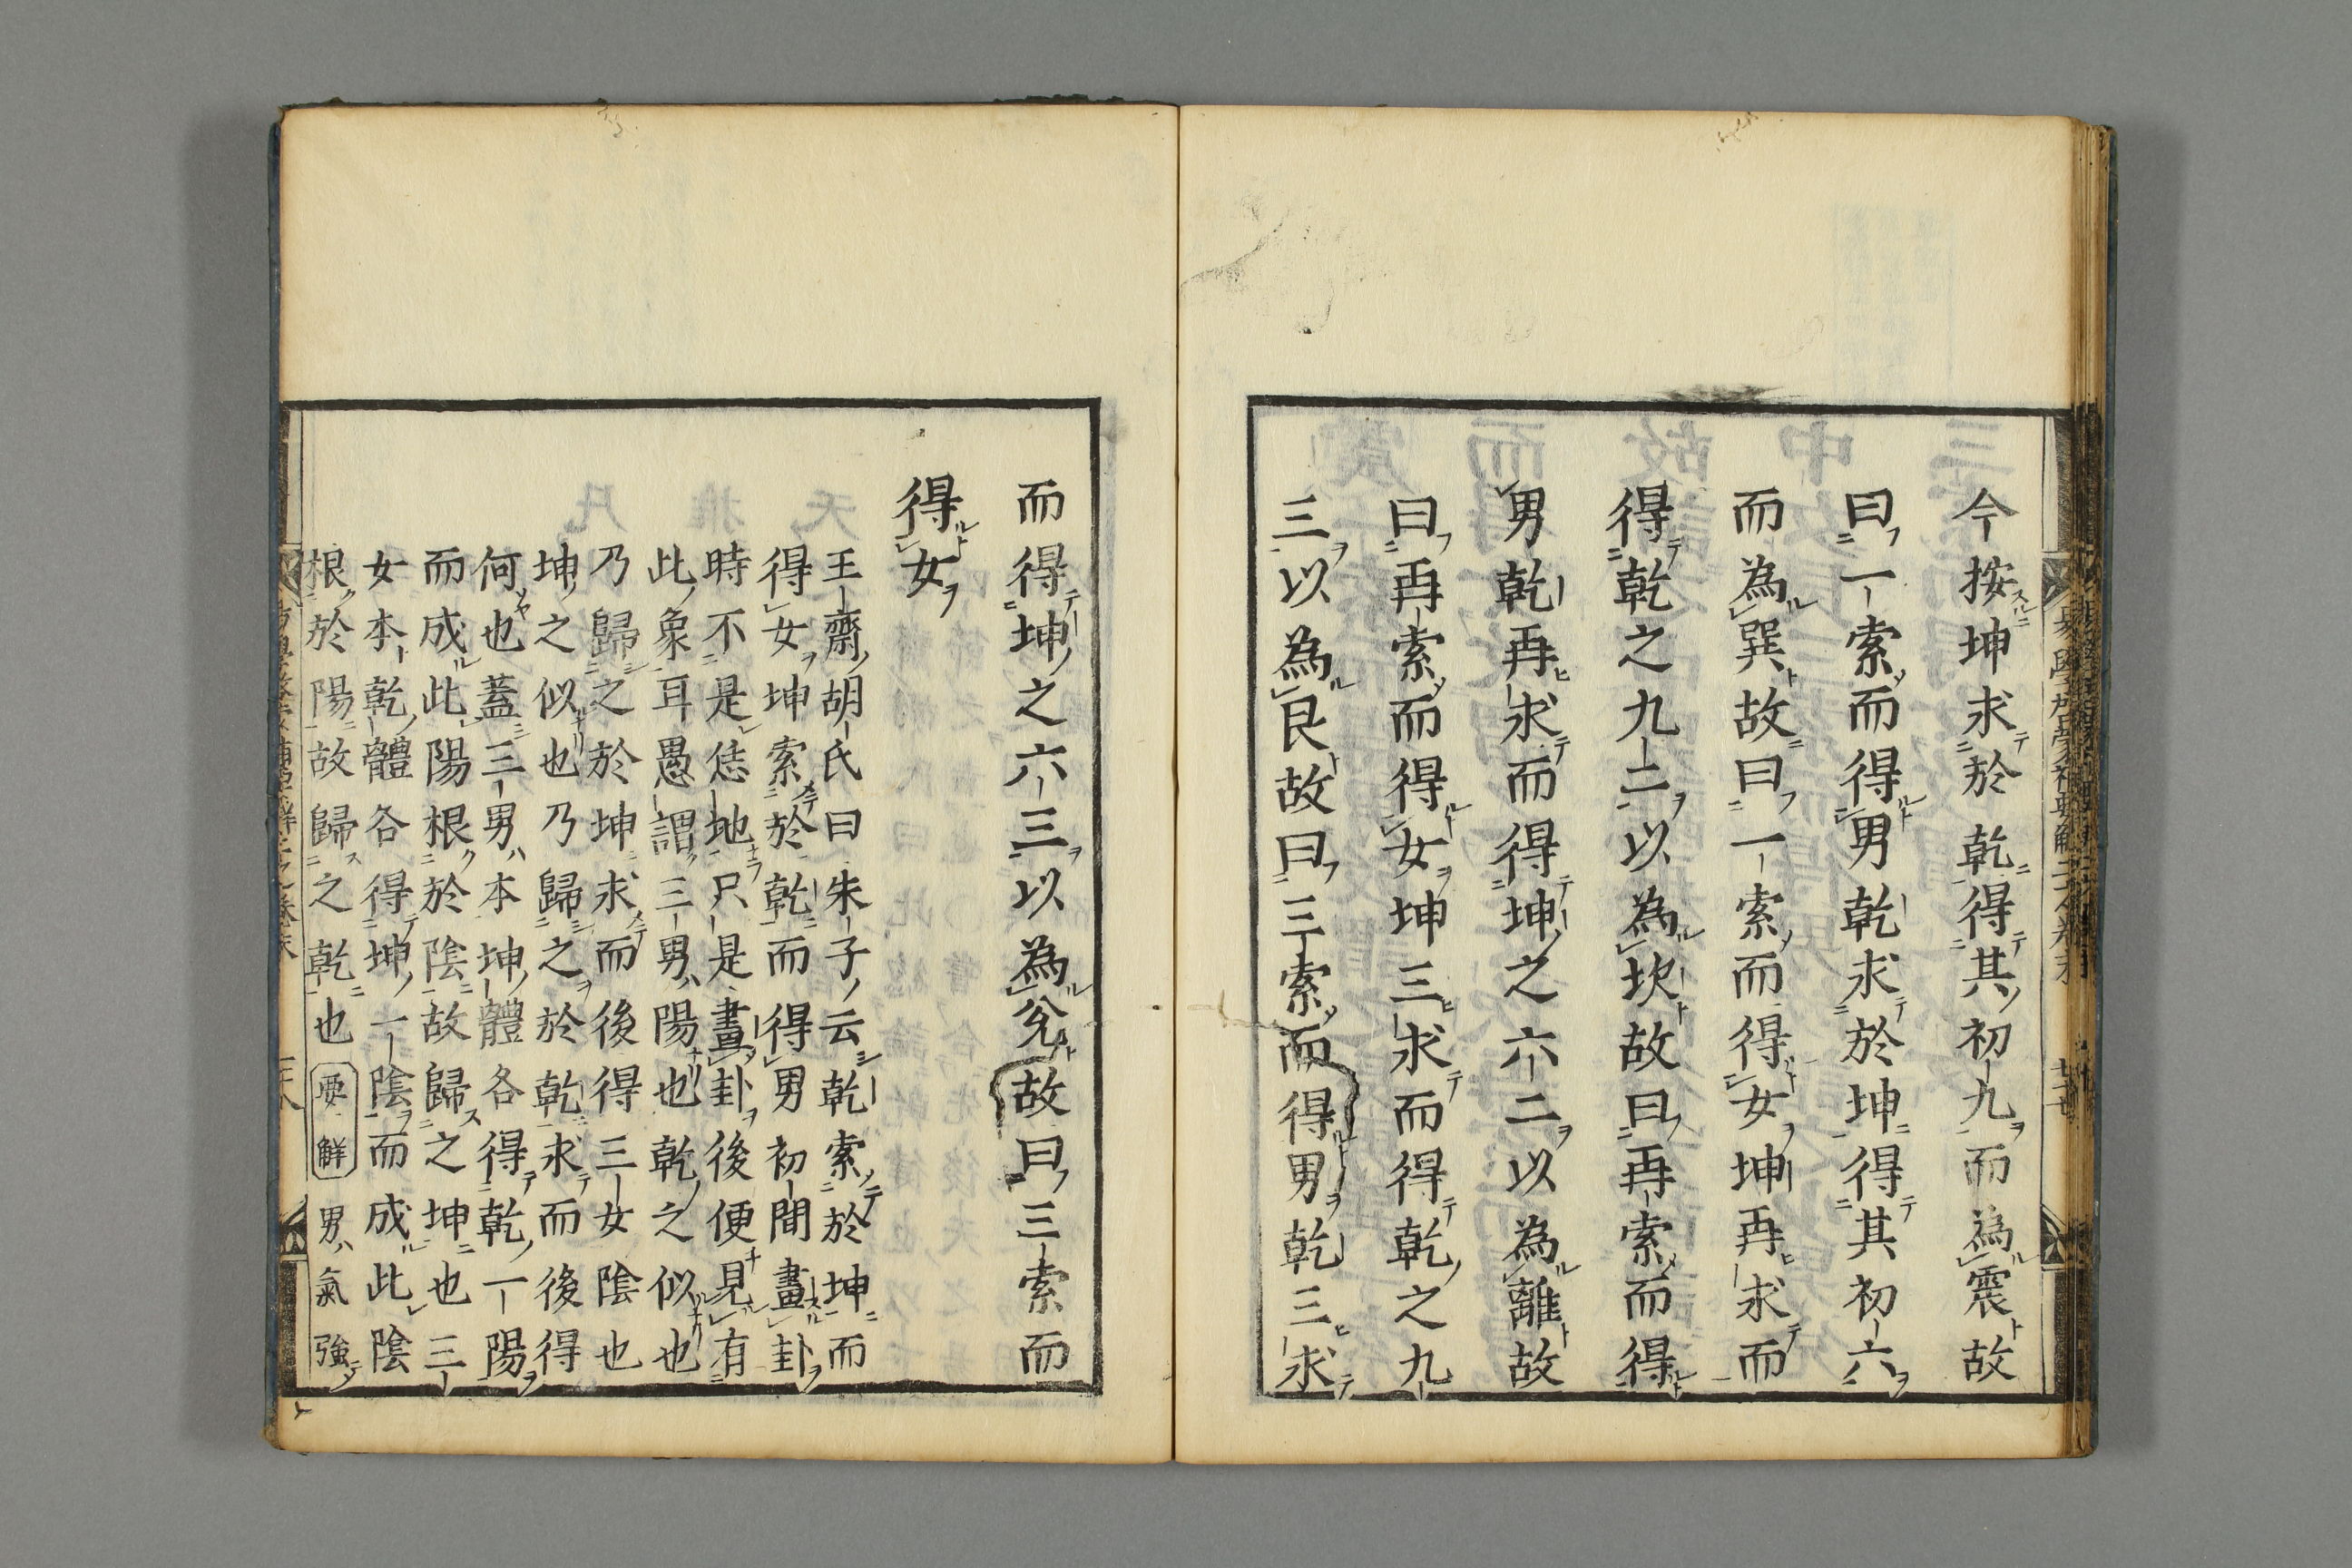 今按坤求於乾得其初九而為震故
曰一索而得男乾求於坤得其初六
而為巽故曰一索而得女坤再求而
得乾之九二以為坎故曰再索而得
男乾再求而得坤之六二以為離故
曰再索而得女坤三求而得乾之九
三以為艮故曰三索而得男乾三求
而得坤之六三以為兌故曰三索而
得女
王齋胡氏曰朱子云乾索於坤而
得女坤索於乾而得男初間畫卦
時不是恁地只是畫卦後便見有
此象耳愚謂三男陽也乾之似也
乃歸之於坤求而後得三女陰也
坤之似也乃歸之於乾求而後得
何也蓋三男本坤體各得乾一陽
而成此陽根於陰故歸之坤也三
女本乾體各得坤一陰而成此陰
根於陽故歸之乾也 要解 男氣強